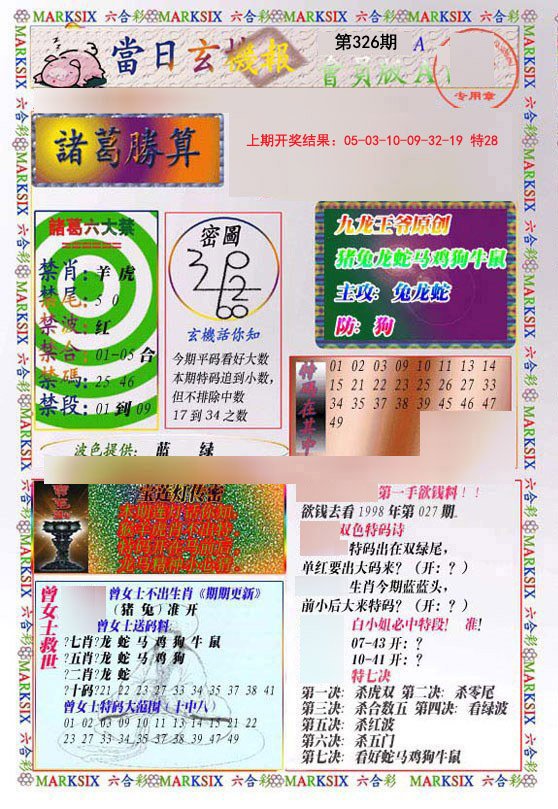 MARKSIX 六合彩 MARKSIX 六合彩 MARKSIX 六合彩 MARKSIX 六合彩
當日玄機报
第326期
A
會員版A
专用章
諸葛勝算
上期开奖结果：05-03-10-09-32-19 特28
諸葛六大禁
禁肖：羊 虎
禁尾：5 0
禁波：红
禁合：01-05 合
禁碼：25 46
禁段：01 到 09
密圖
玄機話你知
今期平码看好大数
本期特码追到小数，
但不排除中数
17 到 34 之数
九龙王爷原创
猪兔龙蛇马鸡狗牛鼠
主攻：兔龙蛇
防：狗
特码在其中
01 02 03 09 10 11 13 14
15 21 22 23 25 26 27 33
34 35 37 38 39 45 46 47
49
波色提供： 蓝 绿
宝莲灯传密
第一手欲钱料！！
欲钱去看 1998 年第 027 期。
双色特码诗
特码出在双绿尾，
单红要出大码来？（开：？）
生肖今期蓝蓝头，
前小后大来特码？（开：？）
白小姐必中特段！ 准！
07-43 开：？
10-41 开：？
特七决
第一决：杀虎双 第二决：杀零尾
第三决：杀合数五 第四决：看绿波
第五决：杀红波
第六决：杀五门
第七决：看好蛇马鸡狗牛鼠
曾女士救世
曾女士不出生肖《期期更新》
（猪 兔）准 开
曾女士送码料：
?七肖?龙 蛇 马 鸡 狗 牛 鼠
?五肖?龙 蛇 马 鸡 狗
?二肖?龙 蛇
?十码?21 22 23 27 33 34 35 37 38 41
曾女士特码大范围（十中八）
01 02 03 09 10 11 13 14 15 21 22
23 27 33 34 35 37 38 39 47 49
MARKSIX 六合彩 MARKSIX 六合彩 MARKSIX 六合彩 MARKSIX 六合彩